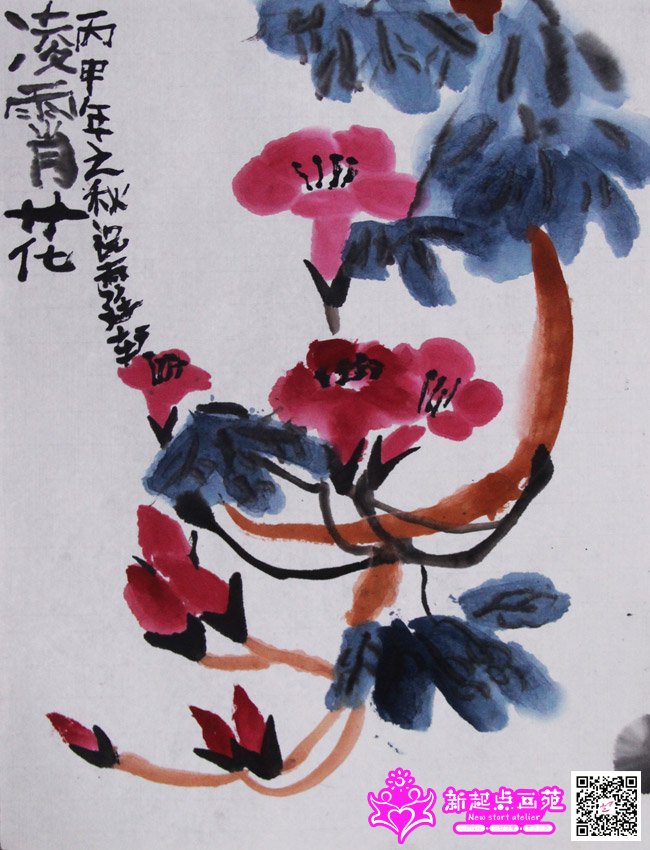 凌霄花
丙申年之秋
新起点画苑
New start atelier